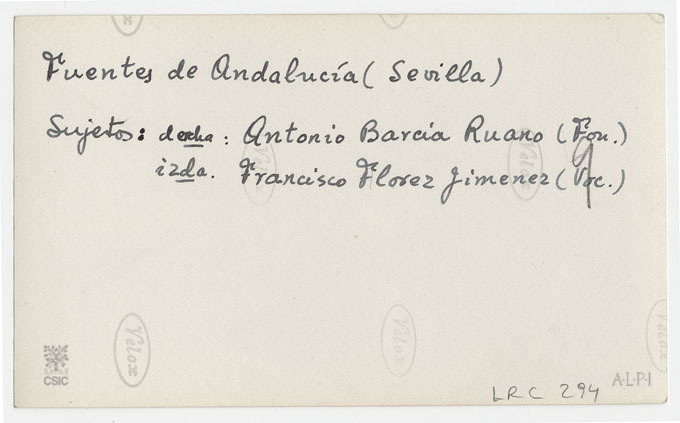 Fuentes de Andalucía (Sevilla)
Sujetos: decha: Antonio Barcia Ruano (Fon.)
izda. Francisco Florez Jimenez (Voc.)
9
Velox
Velox
Velox
Velox
CSIC
LRC 294
A·L·P·I